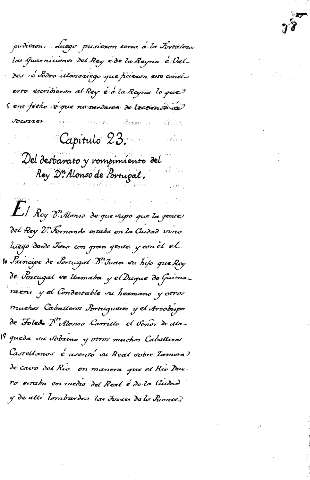 pudieron. Luego pusieron cerco á la Fortaleza
las Guarniciones del Rey é de la Reyna é Val-
des é Pedro
esto escribieron al Rey é á la Reyna lo que
5 era fecho é que no tardasen de
socorrer
Capítulo 23.
Del desbarato y rompimiento del
Rey Dⁿ Alonso de Portugal.
El Rey Dⁿ Alonso de que supo que la gente
del Rey Dⁿ Fernando estaba en la Ciudad vino
luego desde Toro con gran gente y con él el
10 Príncipe de Portugal Dⁿ Juan su hijo que Rey
de Portugal se llamaba y el Duque de Guima-
raens y el Condestable su hermano y otros
muchos Caballeros Portugueses y el Arzobispo
de Toledo Dⁿ Alonso Carrillo el Señor de Ma-
15 queda su Sobrino y otros muchos Caballeros
Castellanos é asentó su Real sobre Zamora
de cavo del Rio en manera que el Rio Due-
ro estaba en medio del Real é de la Ciudad
y de allí lombardeó las Torres de la Puente